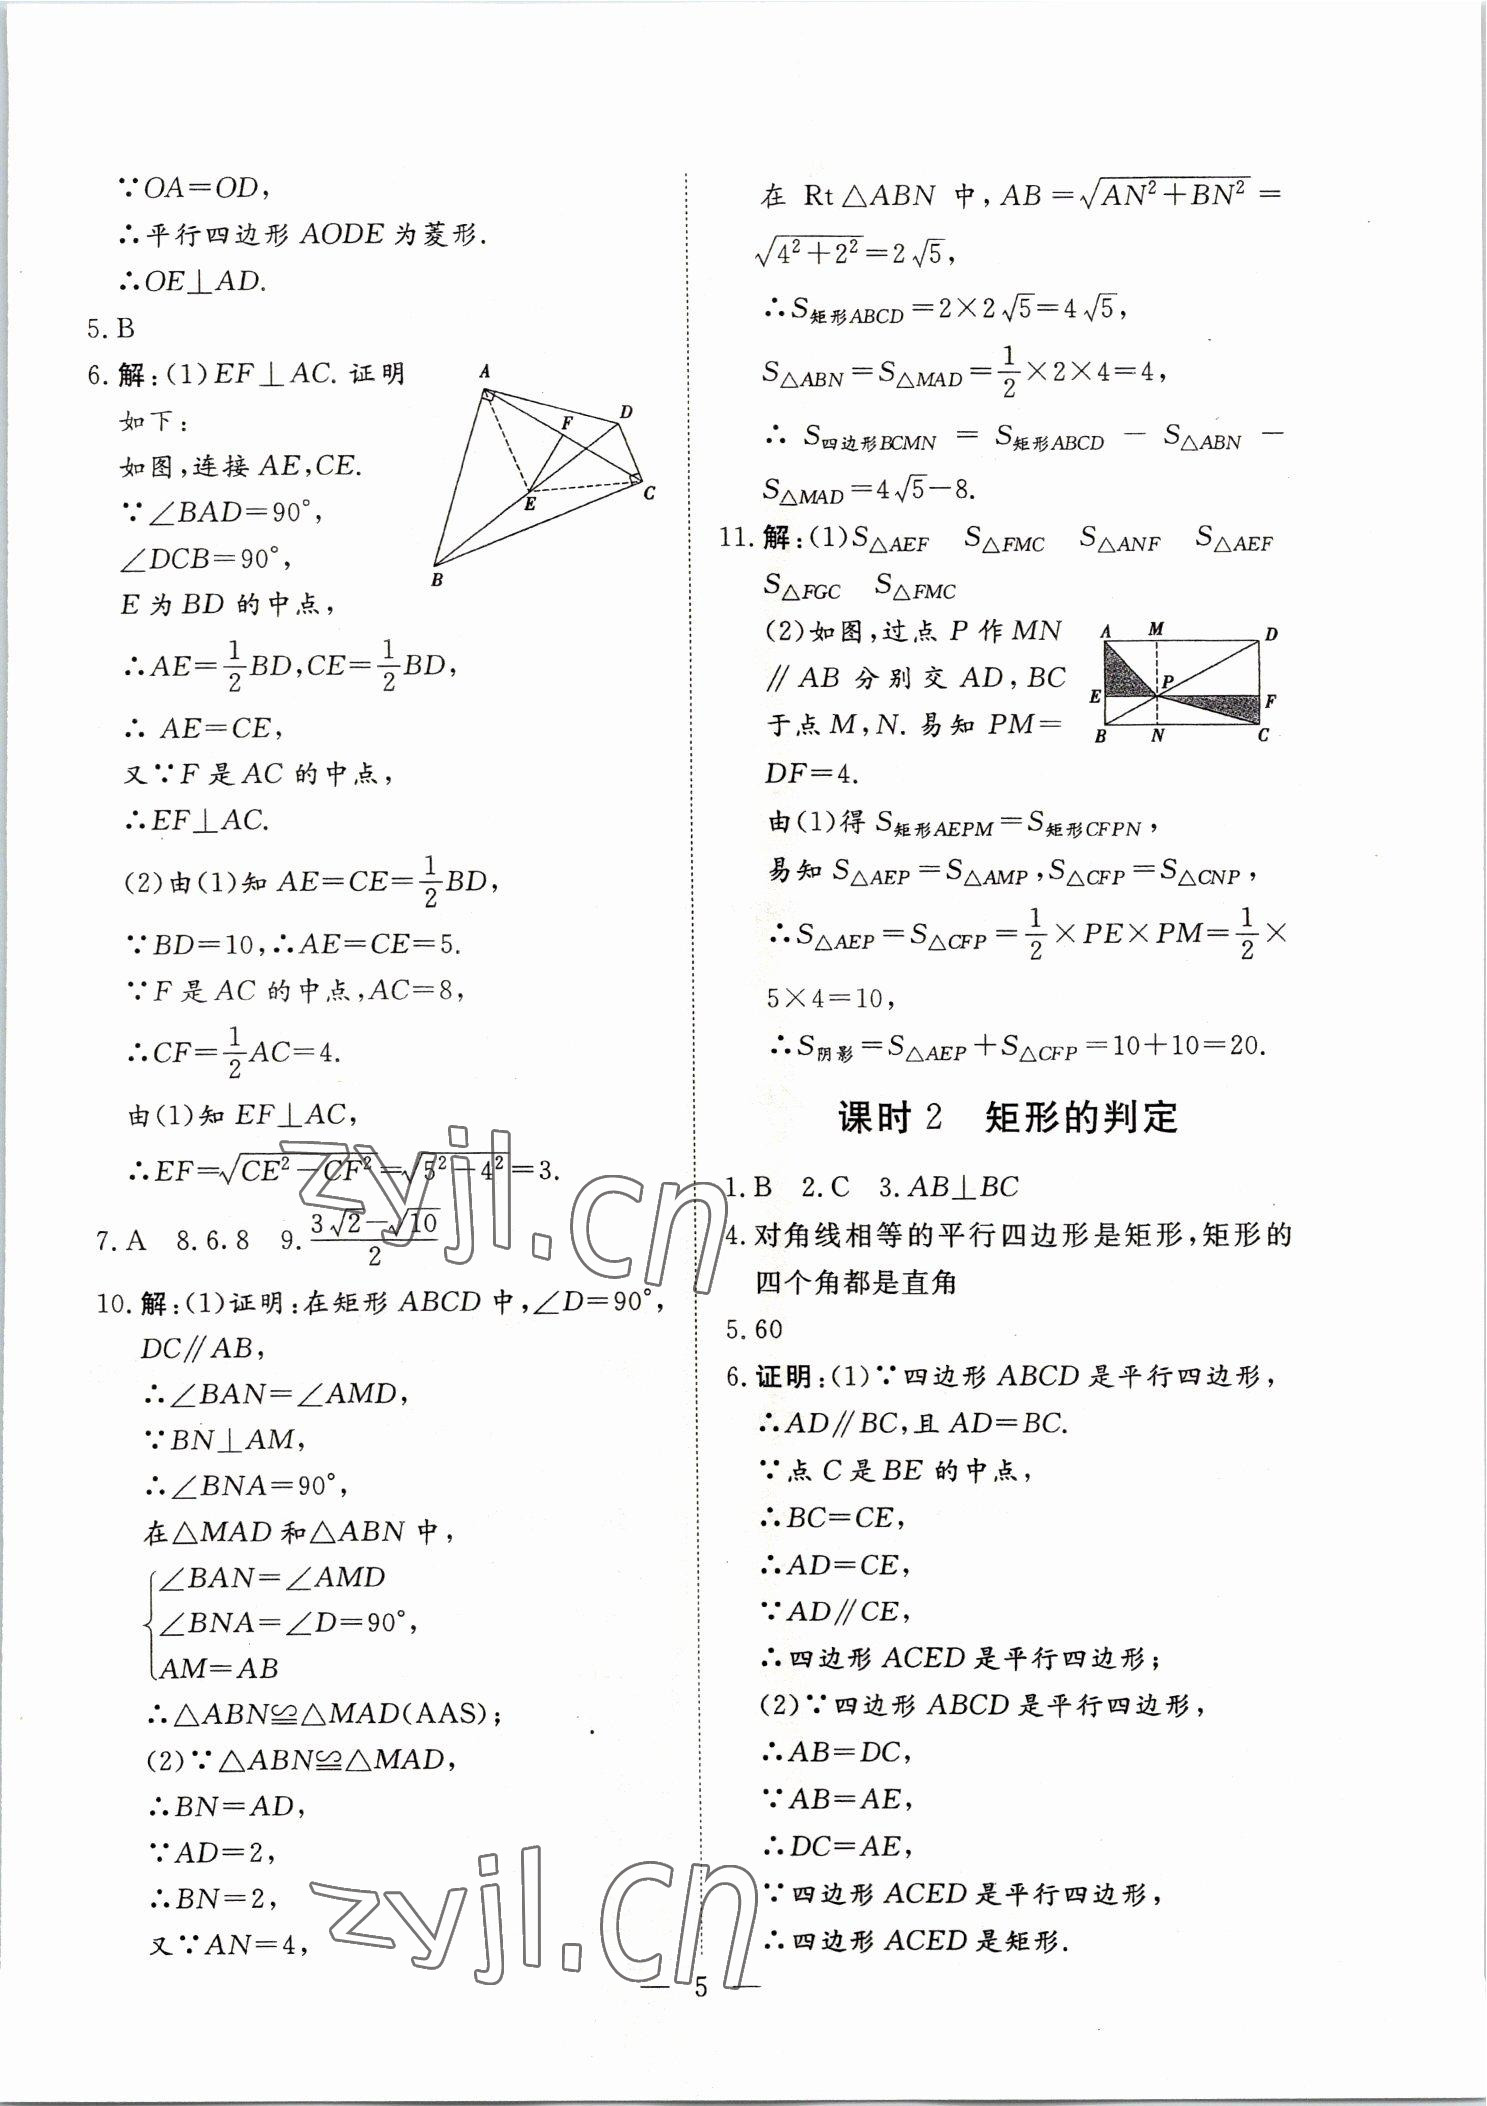 ∵OA=OD,
∴平行四边形 AODE 为菱形.
∴OE⊥AD.
5. B
6. 解:(1)EF⊥AC. 证明
如下:
如图,连接 AE,CE.
∵∠BAD=90°,
∠DCB=90°,
E 为 BD 的中点,
∴AE=1/2BD,CE=1/2BD,
∴ AE=CE,
又∵F 是 AC 的中点,
∴EF⊥AC.
A
D
F
E
C
B
(2)由(1)知 AE=CE=1/2BD,
∵BD=10,∴AE=CE=5.
∵F 是 AC 的中点,AC=8,
∴CF=1/2AC=4.
由(1)知 EF⊥AC,
∴EF=√(CE²-CF²)=√(5²-4²)=3.
7. A 8. 6. 8 9. (3√2-√10)/2
10. 解:(1)证明:在矩形 ABCD 中,∠D=90°,
DC∥AB,
∴∠BAN=∠AMD,
∵BN⊥AM,
∴∠BNA=90°,
在△MAD 和△ABN 中,
{∠BAN=∠AMD
∠BNA=∠D=90°,
AM=AB
∴△ABN≌△MAD(AAS);
(2)∵△ABN≌△MAD,
∴BN=AD,
∵AD=2,
∴BN=2,
又∵AN=4,
在 Rt△ABN 中,AB=√(AN²+BN²)=
√(4²+2²)=2√5,
∴S矩形ABCD=2×2√5=4√5,
S△ABN=S△MAD=1/2×2×4=4,
∴ S四边形BCMN = S矩形ABCD - S△ABN -
S△MAD=4√5-8.
11. 解:(1)S△AEF S△FMC S△ANF S△AEF
S△FGC S△FMC
(2)如图,过点 P 作 MN
∥AB 分别交 AD,BC
于点 M,N. 易知 PM=
DF=4.
A M D
E P F
B N C
由(1)得 S矩形AEPM=S矩形CFPN,
易知 S△AEP=S△AMP,S△CFP=S△CNP,
∴S△AEP=S△CFP=1/2×PE×PM=1/2×
5×4=10,
∴S阴影=S△AEP+S△CFP=10+10=20.
课时 2 矩形的判定
1. B 2. C 3. AB⊥BC
4. 对角线相等的平行四边形是矩形,矩形的
四个角都是直角
5. 60
6. 证明:(1)∵四边形 ABCD 是平行四边形,
∴AD∥BC,且 AD=BC.
∵点 C 是 BE 的中点,
∴BC=CE,
∴AD=CE,
∵AD∥CE,
∴四边形 ACED 是平行四边形;
(2)∵四边形 ABCD 是平行四边形,
∴AB=DC,
∵AB=AE,
∴DC=AE,
∵四边形 ACED 是平行四边形,
∴四边形 ACED 是矩形.
— 5 —
zyjl.cn
zyjl.cn